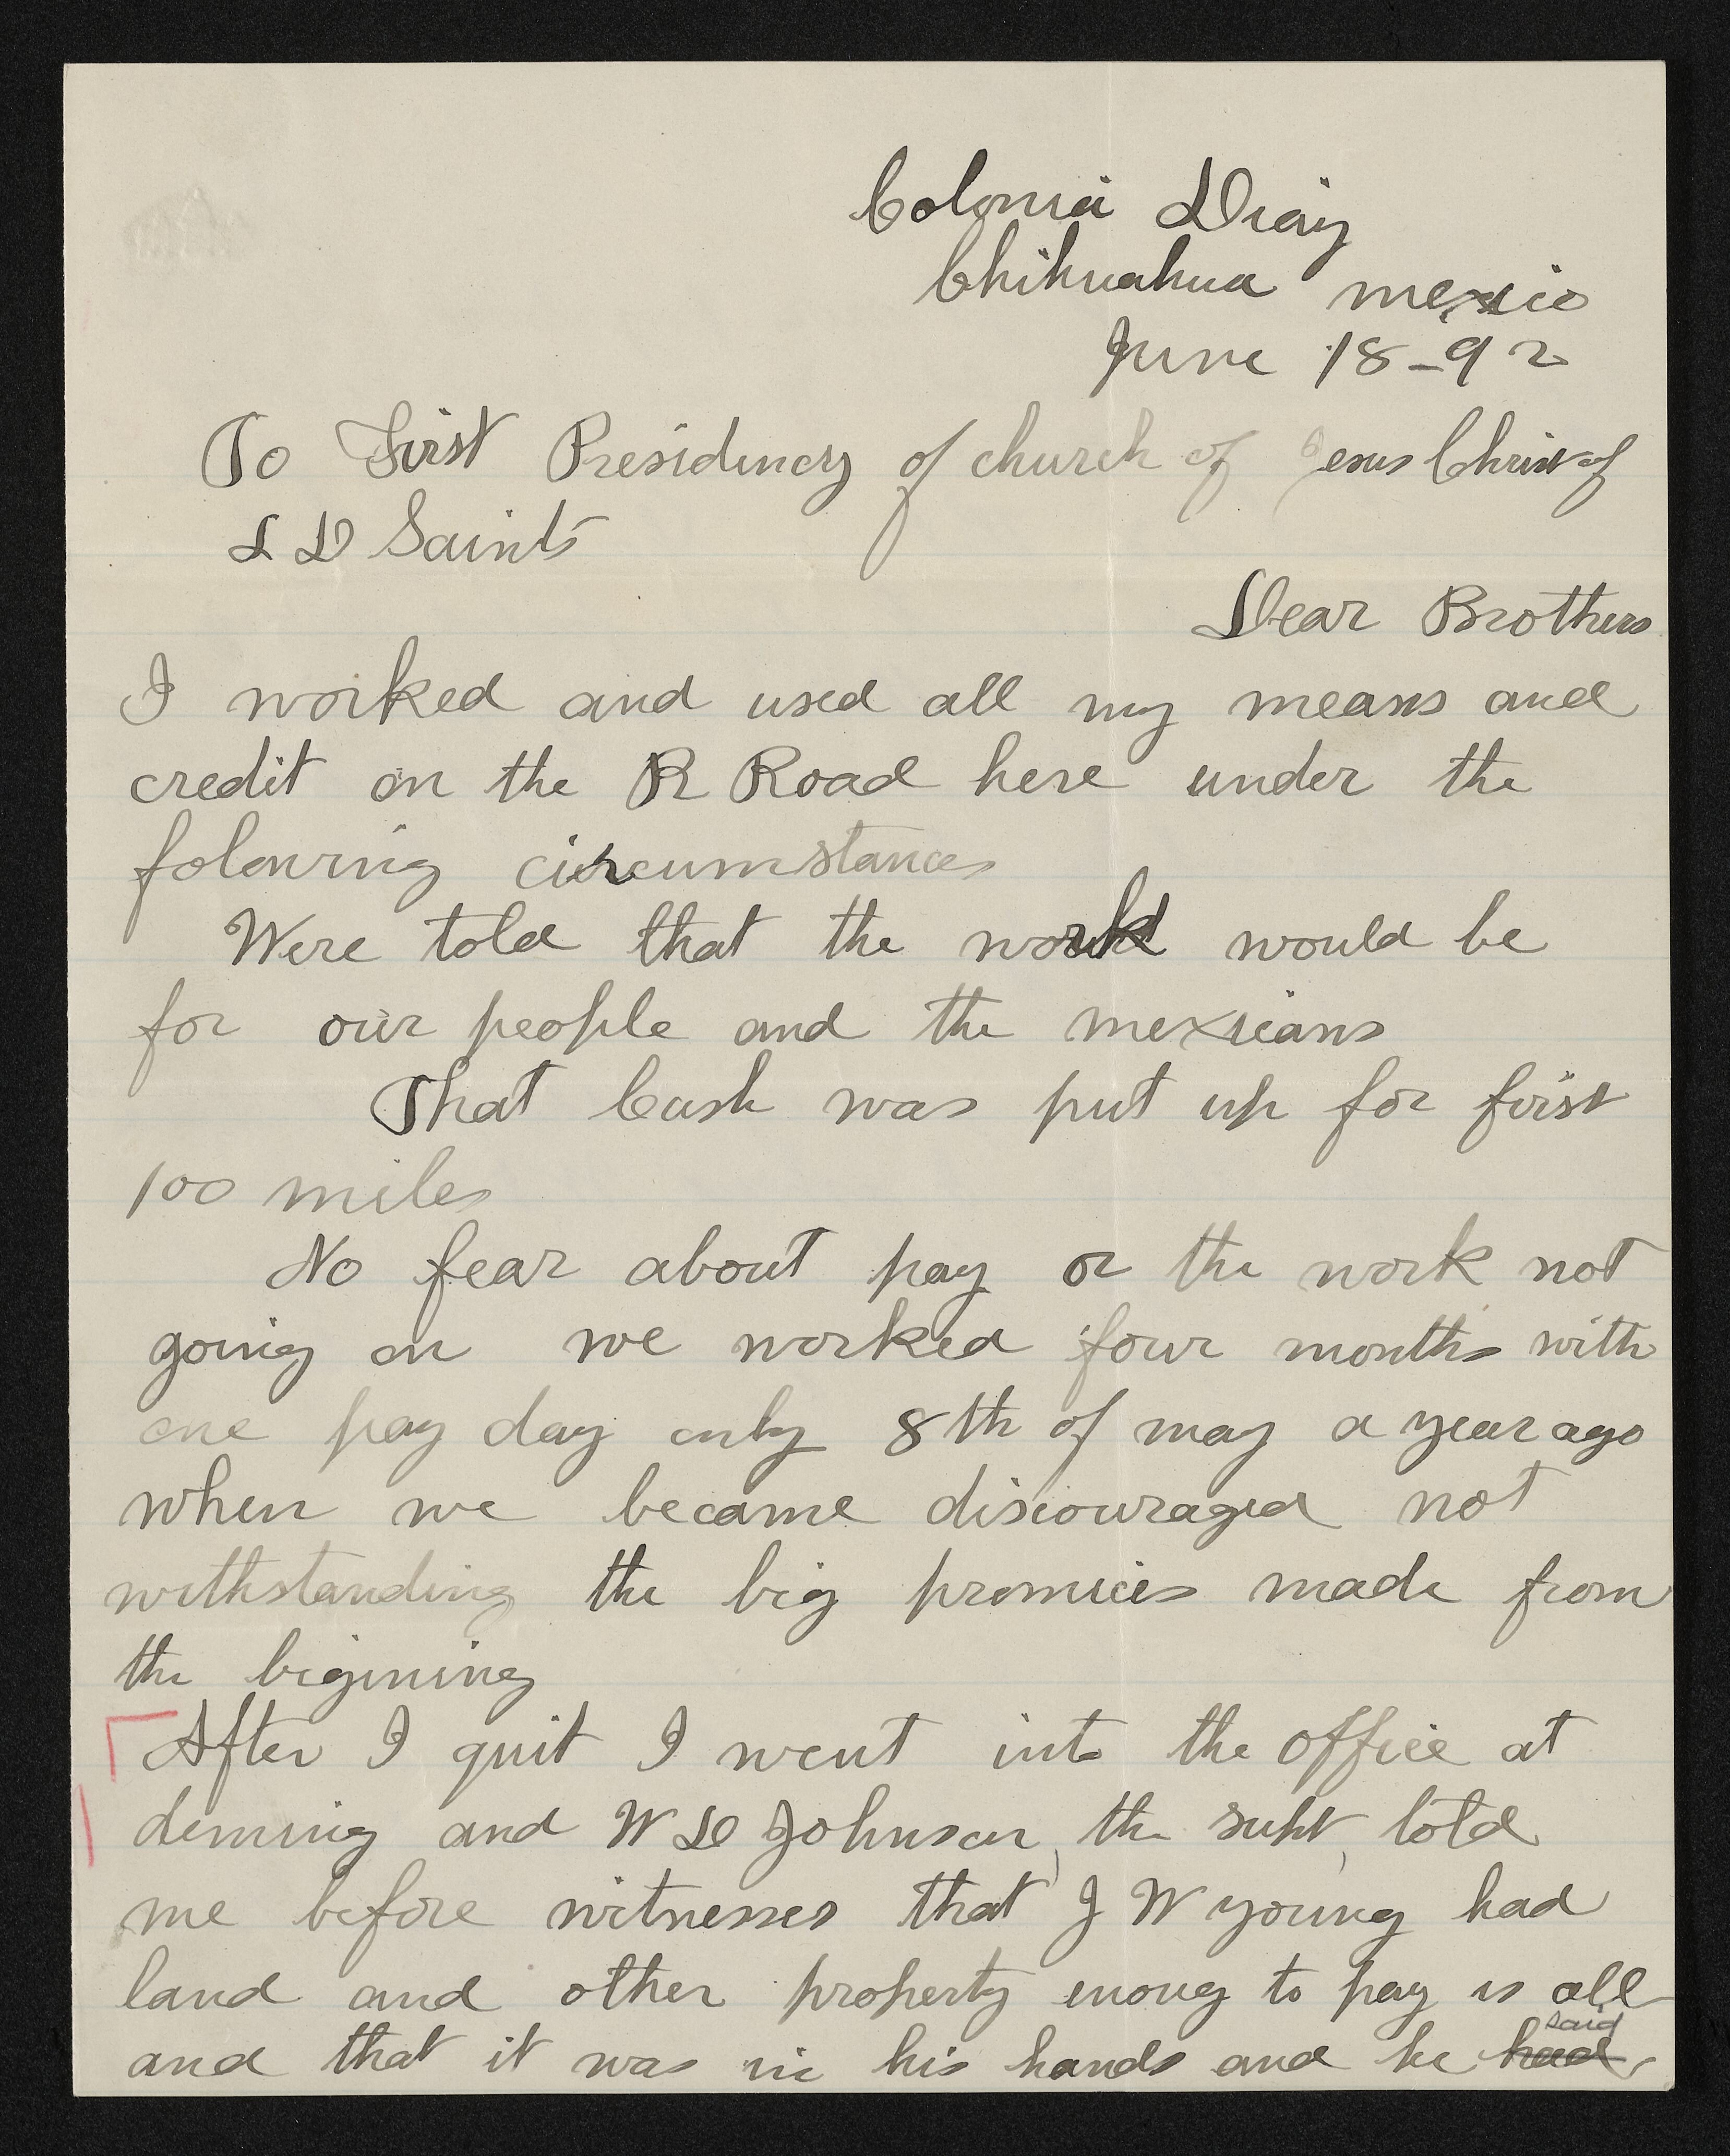 Colonia Diaz
Chihuahua mexico
June 18-92
To First Presidency of church of Jesus Christ of
L D Saints
Dear Brothers
I worked and used all my means and
credit on the R Road here under the
folowing circumstances
Were told that the work would be
for our people and the mexicans
That Cash was put up for first
100 miles
No fear about pay or the work not
going on we worked four months with
one pay day only 8th of may a year ago
when we became discouraged not
withstanding the big promices made from
the bigining
After I quit I went into the office at
deming and W D Johnson, the supt, told
me before witnesses that J W young had
land and other property enoug to pay us all
and that it was in his hands and he had said